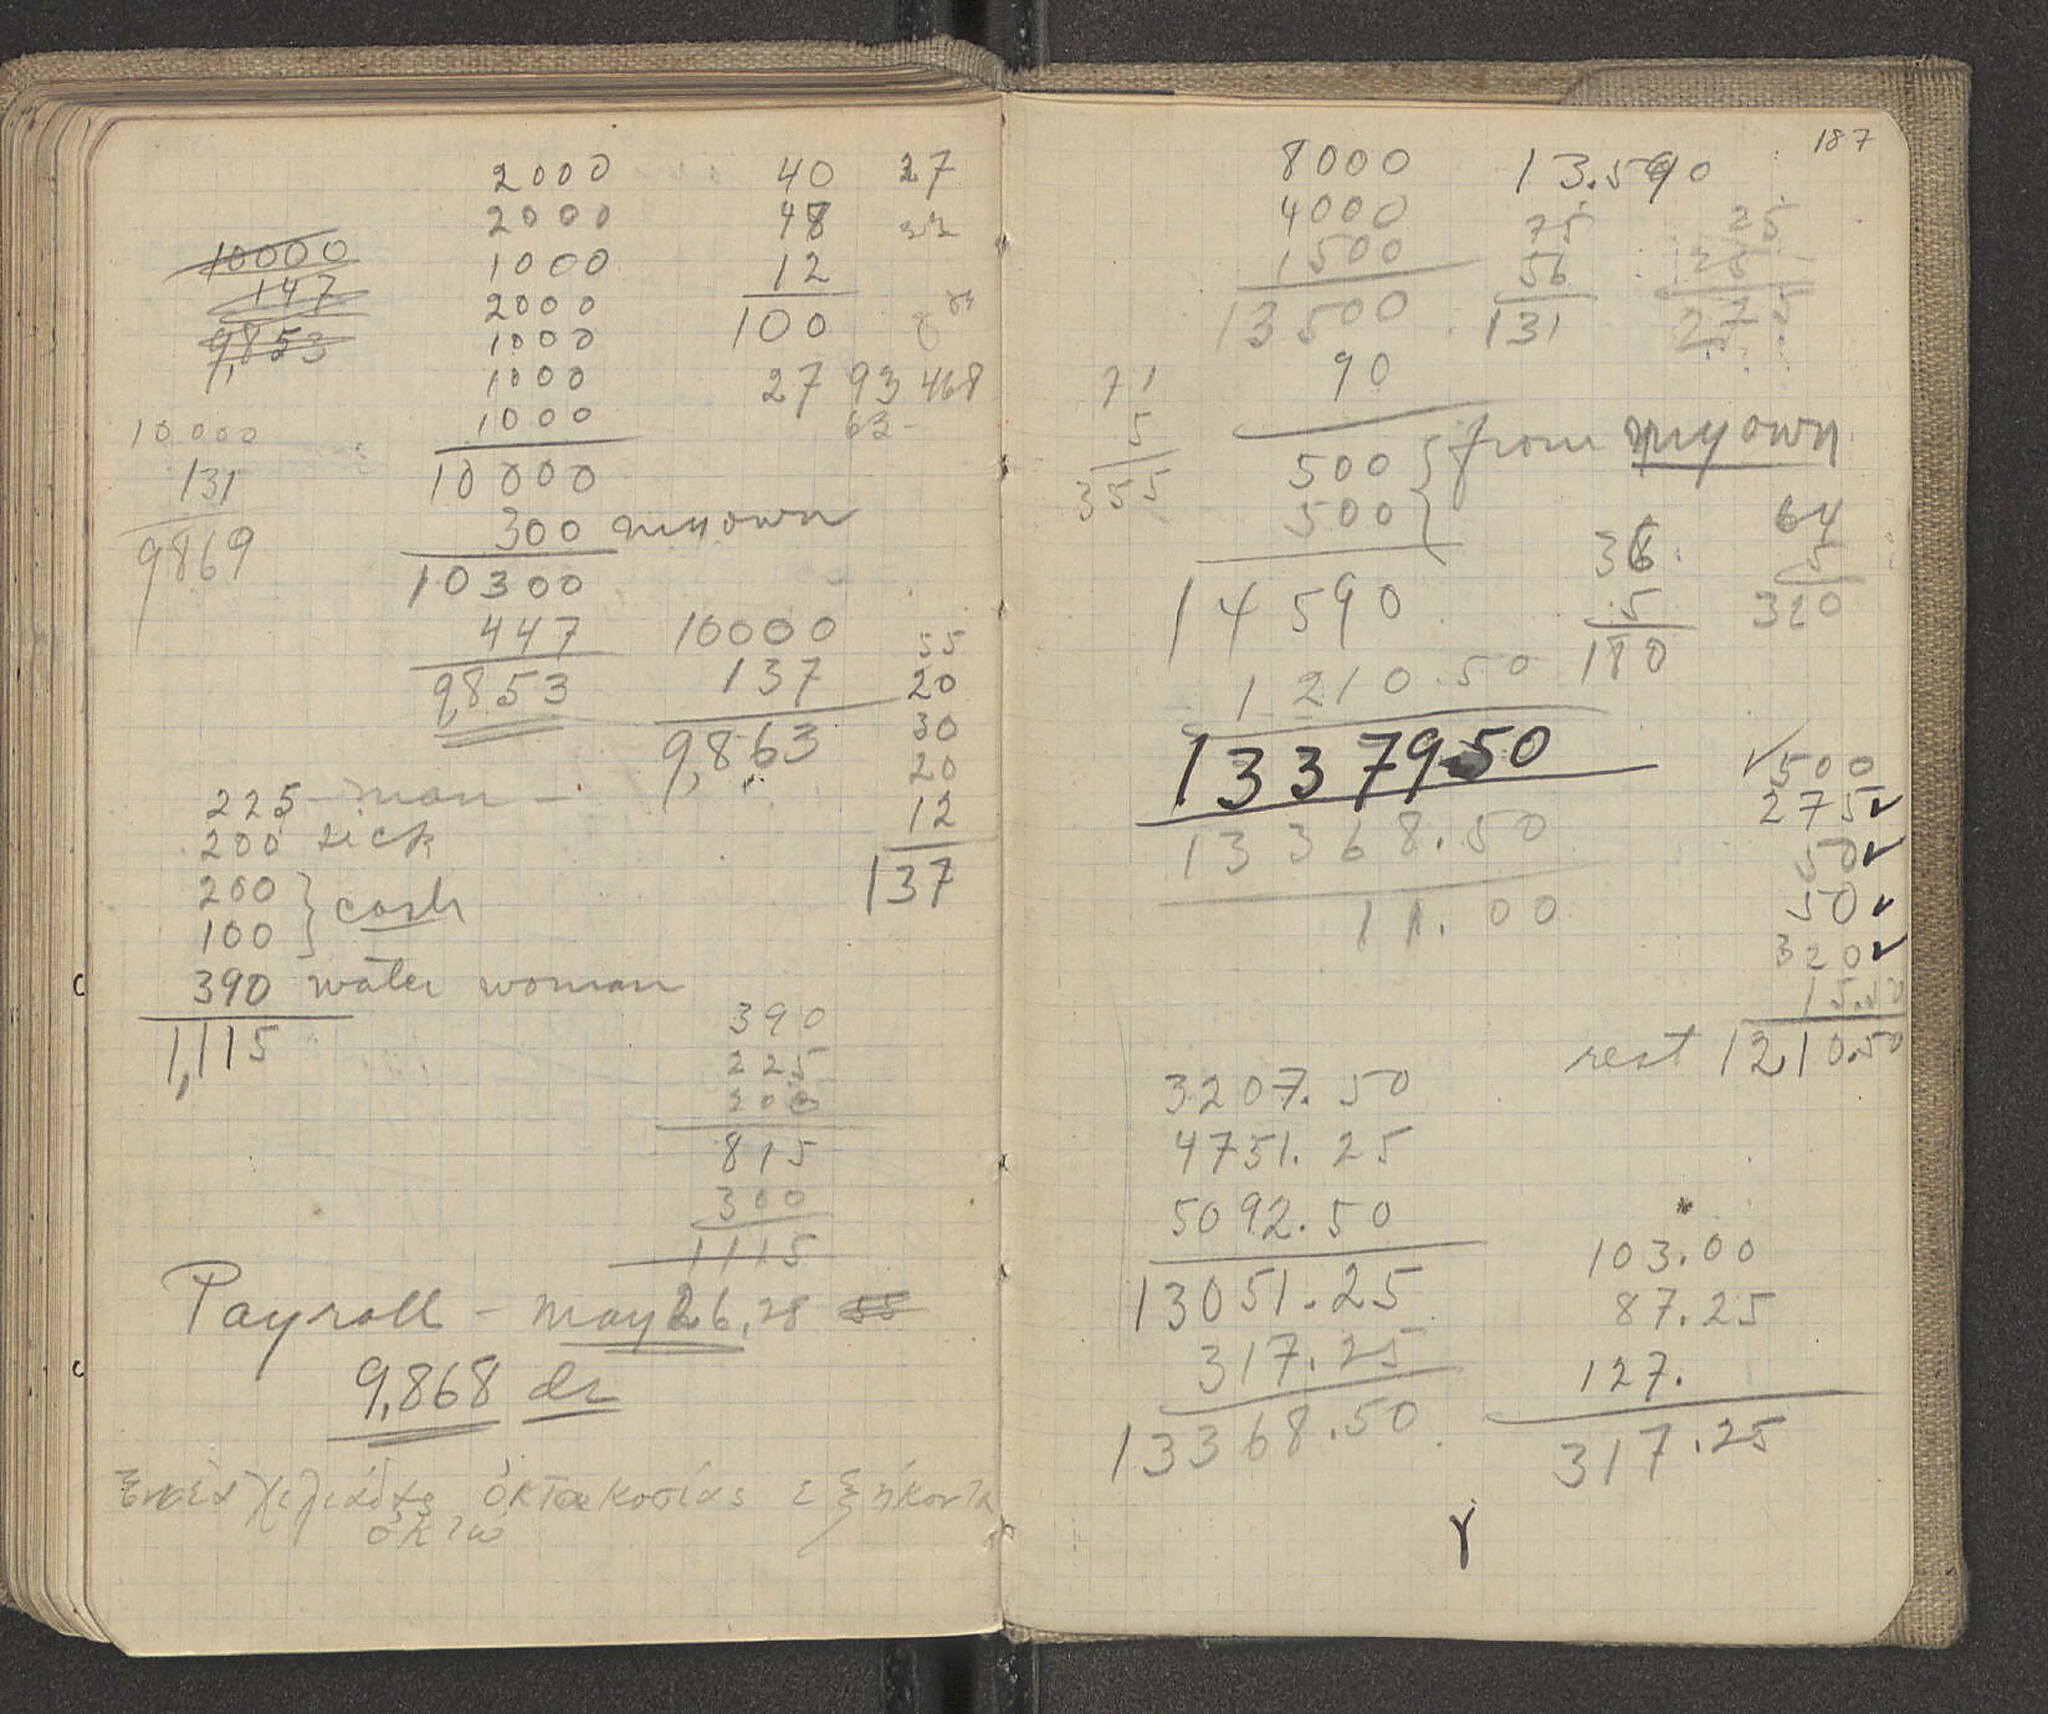 2000
2000
1000
2000
1000
1000
1000
10000
300 my own
10300
447
9,853
10000
147
9,853
10000
131
9869
40
48
12
100
27
27 93 468
63-
10000
137
9,863
55
20
30
20
12
137
225 - man -
200 sick
200
100 } cash
390 water woman
1,115
390
225
200
815
300
1115
Payroll - May 26, 28 55
9,868 dr
Ἐννέα χιλιάδας ὀκτακοσίας ἑξήκοντα
ὀκτώ
187
8000
4000
1500
13500
90
500
500 } from my own
14590
1210.50
1337950
13368.50
11.00
13.590
75
56
131
25
25
275
71
5
355
36
5
180
64
5
320
500
275
50
50
320
rest 1210.50
3207.50
4751.25
5092.50
13051.25
317.25
13368.50
*
103.00
87.25
127.
317.25